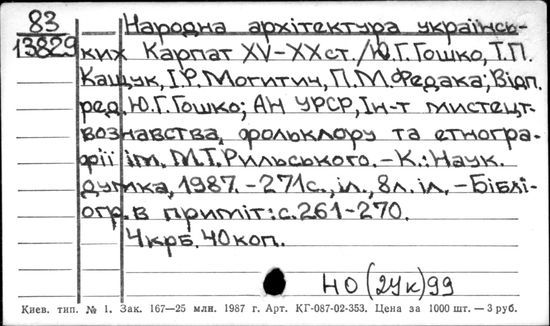 83 Народна архітектура українсь-
13829 ких Карпат XV-XXст./Ю.Г.Гошко,Т.П.
Кащук,І.Р.Могитич,П.М.Федака;Відп.
ред.Ю.Г.Гошко; АН УРСР,Ін-т мистецт-
вознавства, фольклору та етногра-
фії ім. М.Т.Рильського.-К.:Наук.
думка,1987.-271с.,іл.,8л.іл.-Біблі-
огр.в приміт:с.261-270.
4крб.40коп.
НО(2Ук)99
Киев. тип. № 1. Зак. 167—25 млн. 1987 г. Арт. КГ-087-02-353. Цена за 1000 шт. — 3 руб.